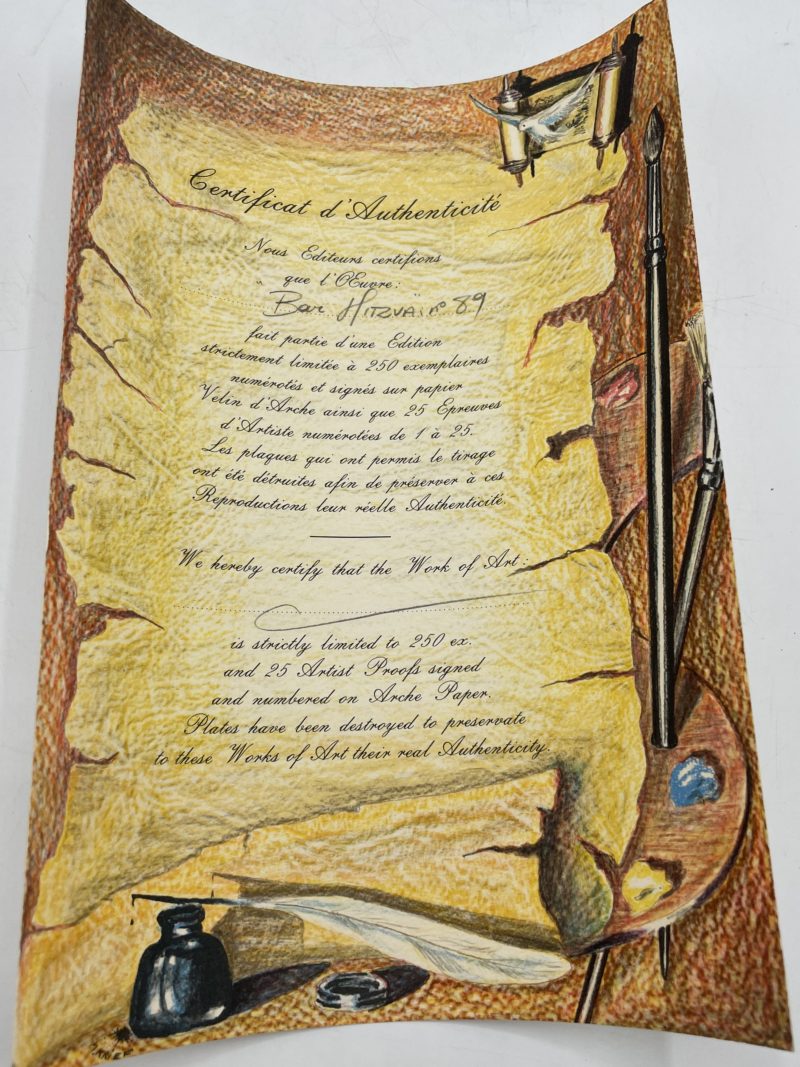 Certificat d'Authenticité
Nous Editeurs certifions
que l'Œuvre:
Bar MITZVA n° 89
fait partie d'une Edition
strictement limitée à 250 exemplaires
numérotés et signés sur papier
Velin d'Arche ainsi que 25 Epreuves
d'Artiste numérotées de 1 à 25.
Les plaques qui ont permis le tirage
ont été détruites afin de préserver à ces
Reproductions leur réelle Authenticité.
We hereby certify that the Work of Art:
is strictly limited to 250 ex.
and 25 Artist Proofs signed
and numbered on Arche Paper.
Plates have been destroyed to preservate
to these Works of Art their real Authenticity.